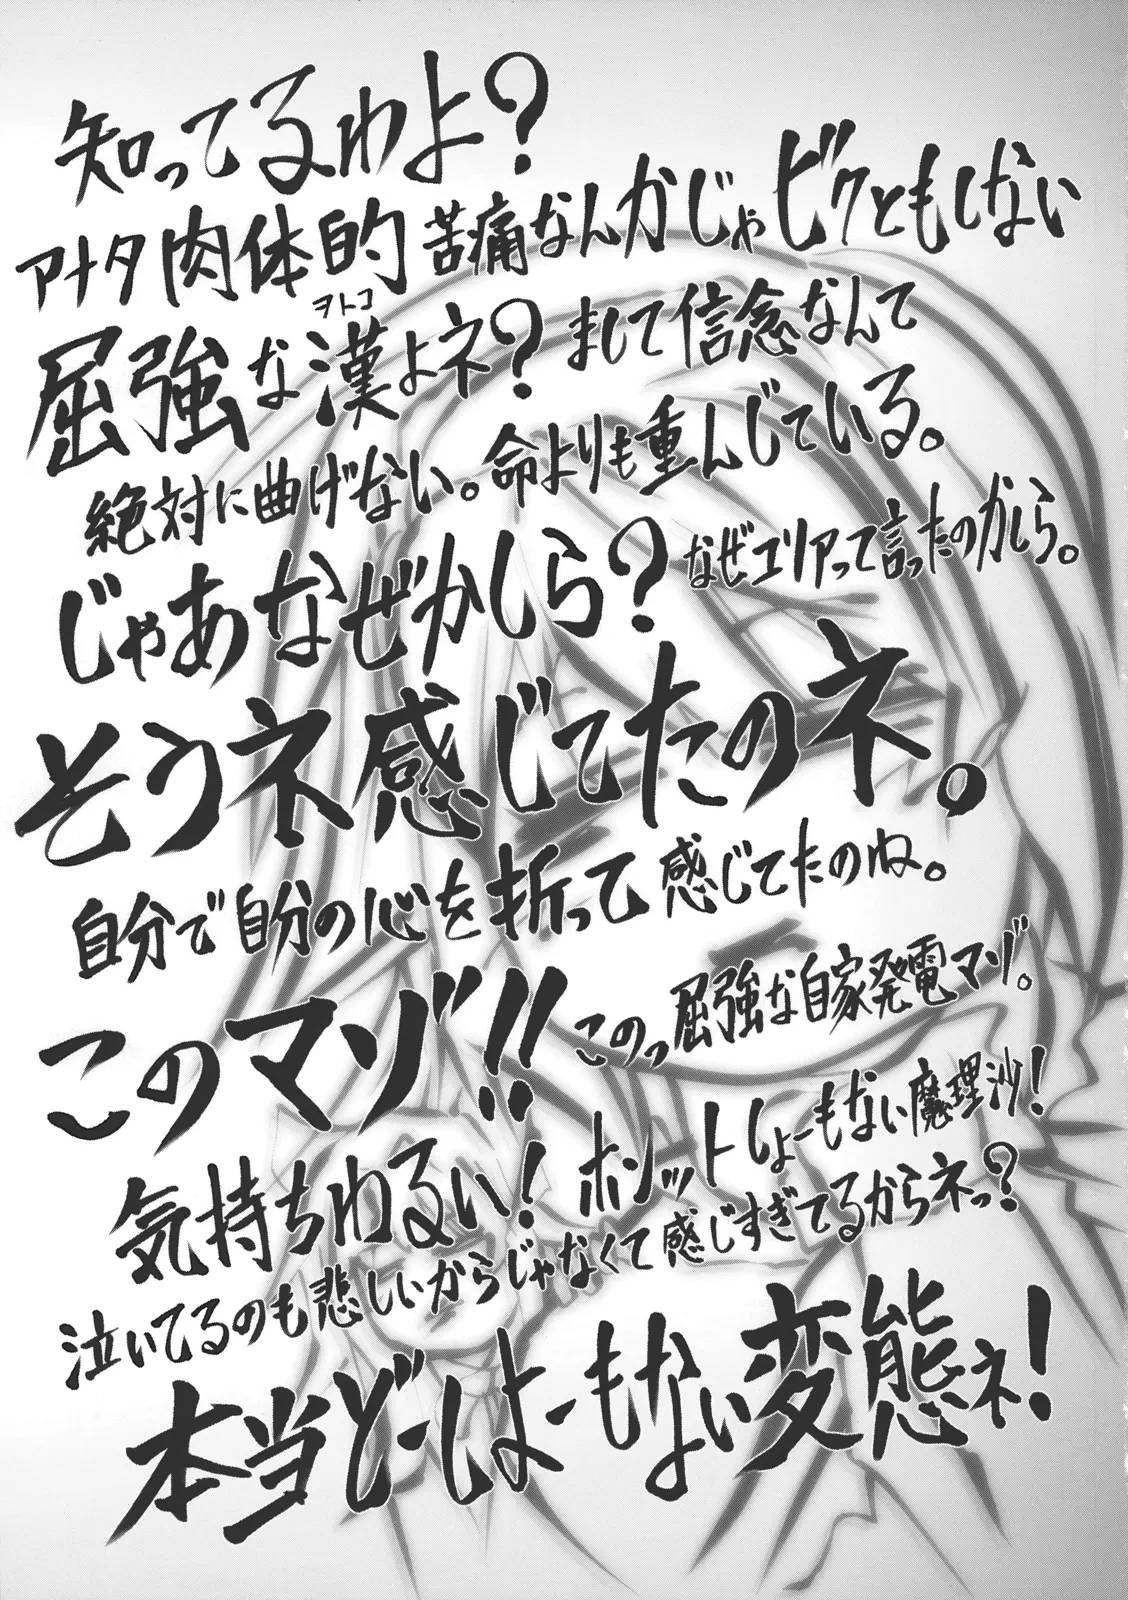 知ってるわよ?
アナタ肉体的苦痛なんかじゃビクともしない
ヲトコ
屈強な漢よネ?まして信念なんて
絶対に曲げない。命よりも重んじている。
じゃあなぜかしら?なぜエリアって言ったのかしら。
そうネ感じてたのネ。
自分で自分の心を折って感じてたのね。
このマゾ!!このっ屈強な自家発電マゾ。
気持ちわるい!ホンットしょーもない魔理沙!
泣いてるのも悲しいからじゃなくて感じすぎてるからネっ?
本当どーしよーもない変態ネ!